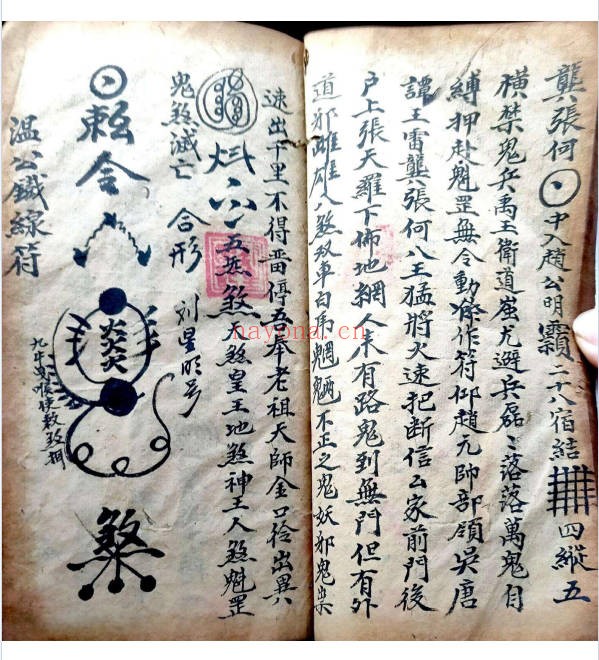 龔張何 中入趙公明 二十八宿結 四縱五
橫禁鬼兵禹王衛道蚩尤選兵磊〻落落萬鬼自
縛押赴魁罡無令動 作符仰趙元帥部領吳唐
譚王雷龔張何八王猛將火速把斷信士家前門後
户上張天羅下佈地網人來有路鬼到無門但有外
道邪 雌雄八煞双車白虎魍魎不正之鬼妖邪鬼祟
速出千里不得畱停吾奉老祖天師金口 出異
五 煞 天煞皇王地煞神王人煞魁罡
鬼煞滅亡 合形 刘星明号
敕令
煞
九牛
温公鐵線符
nayona.cn